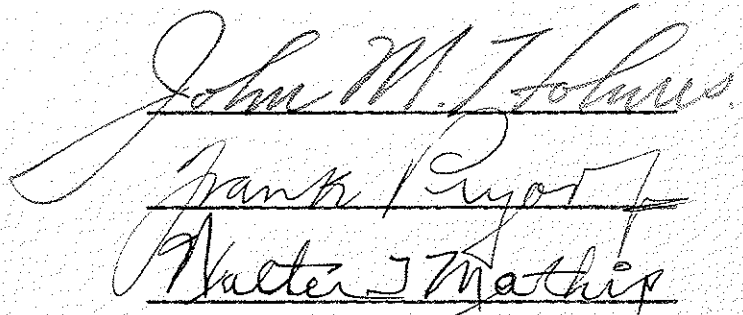 John M. Holmes.
Frank Pryor Jr
Walter J Mathis